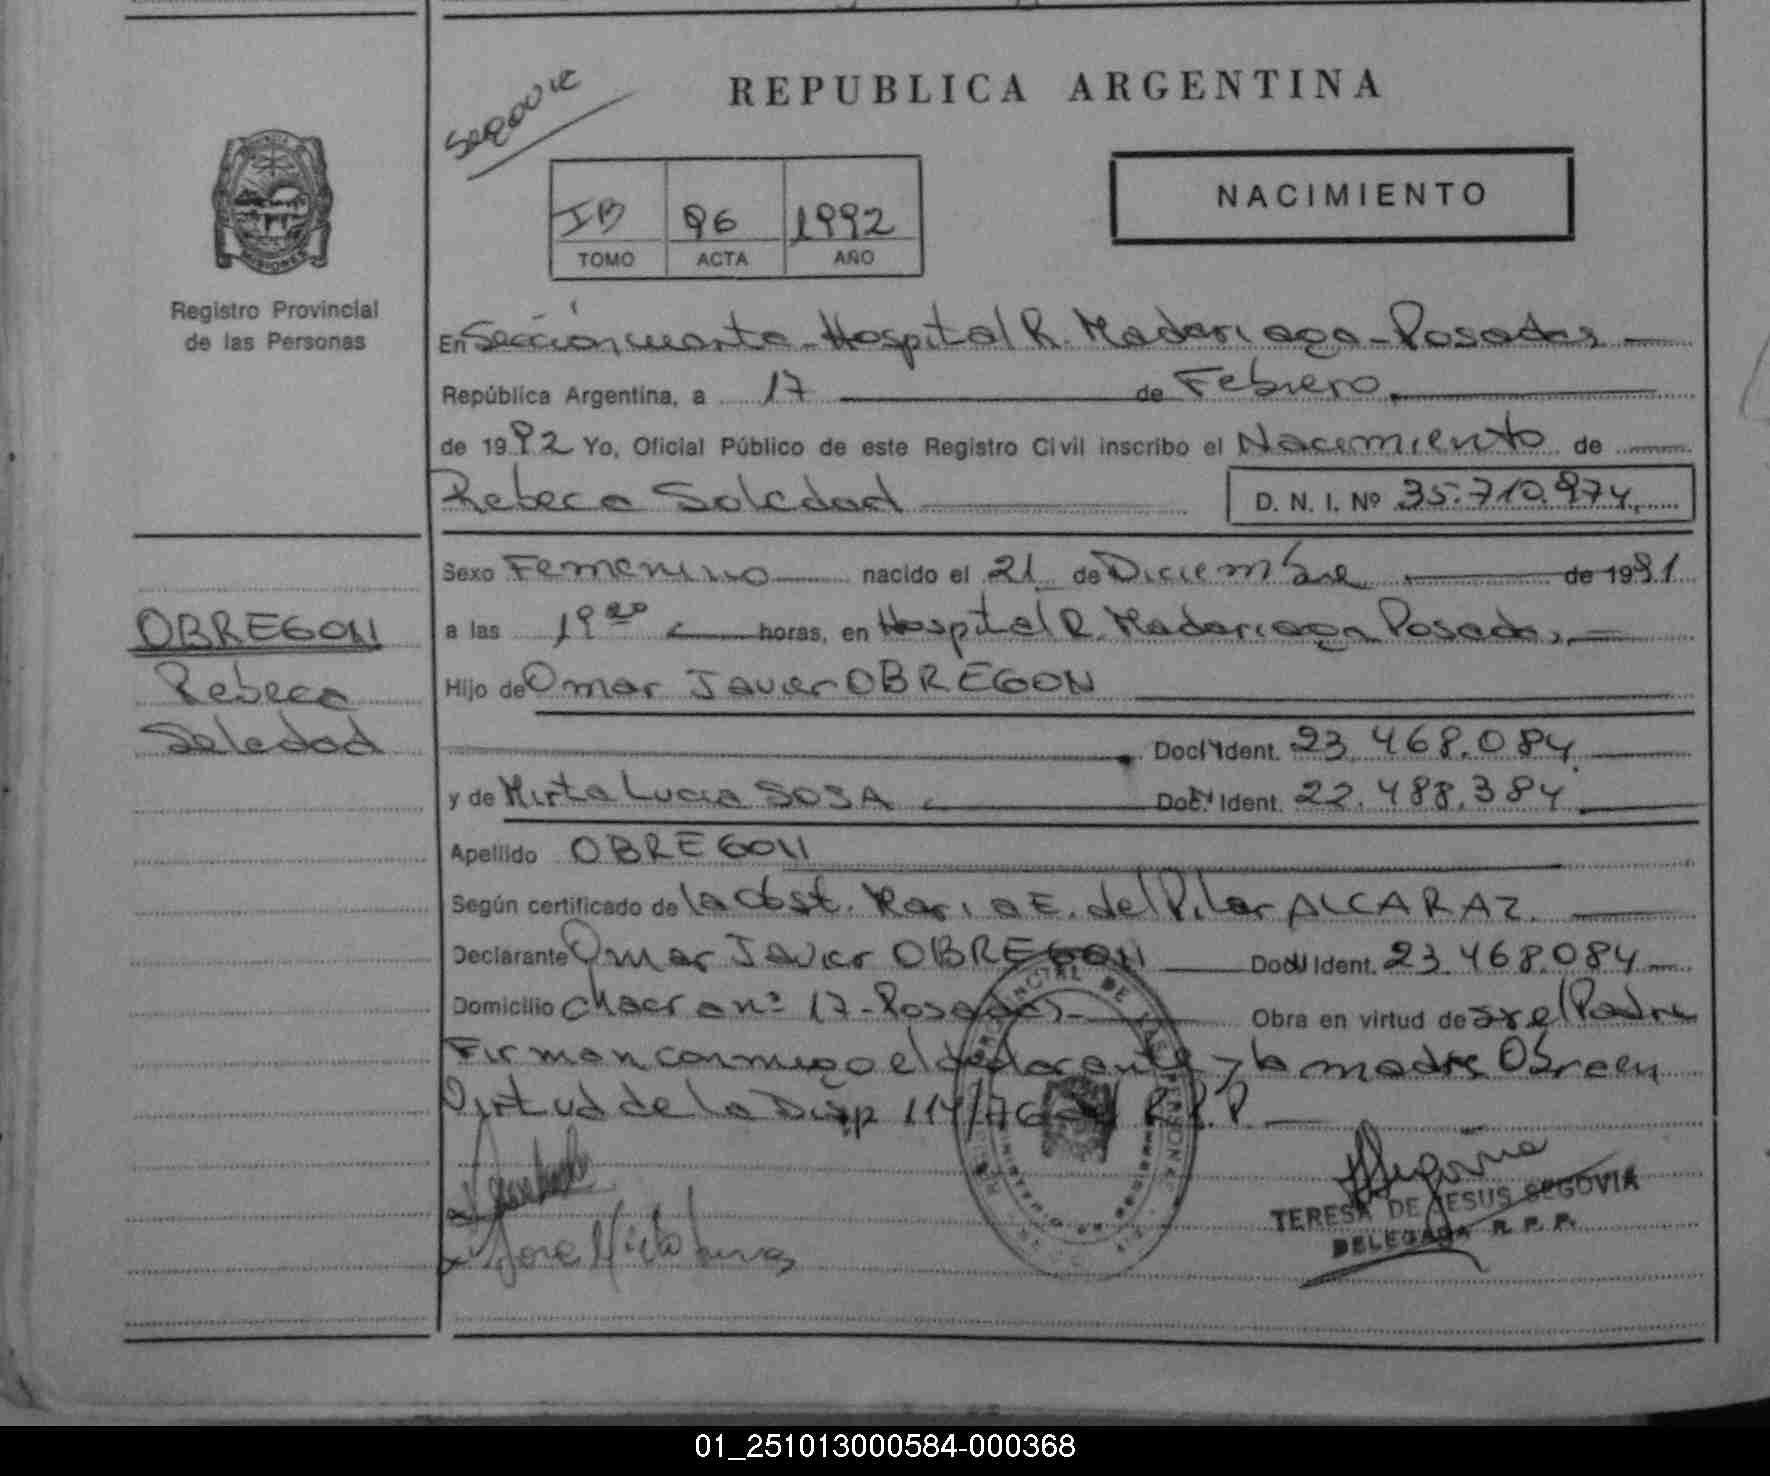 Segovia
REPUBLICA ARGENTINA
NACIMIENTO
IB 96 1992
TOMO ACTA AÑO
MISIONES
Registro Provincial
de las Personas
En Sección cuarta - Hospital R. Madariaga - Posadas
República Argentina, a 17 de Febrero
de 1992 Yo, Oficial Público de este Registro Civil inscribo el Nacimiento de
Rebeca Soledad D. N. I. Nº 35.710.974
Sexo Femenino nacido el 21 de Diciembre de 1991
a las 19 20 horas, en Hospital R. Madariaga Posadas,
Hijo de Omar Javier OBREGON
Doc. Ident. 23.468.084
y de Mirta Lucia SOSA Doc. Ident. 22.488.384
Apellido OBREGON
Según certificado de la Obst. Maria E. del Pilar ALCARAZ.
Declarante Omar Javier OBREGON Doc. Ident. 23.468.084
Domicilio Chacra nº 17 - Posadas - Obra en virtud de ser el Padre
Firman conmigo el declarante y la madre Obra en
Virtud de la Disp 114/76 R.P.P.
OBREGON
Rebeca
Soledad
TERESA DE JESUS SEGOVIA
DELEGADA R. P. P.
01_251013000584-000368